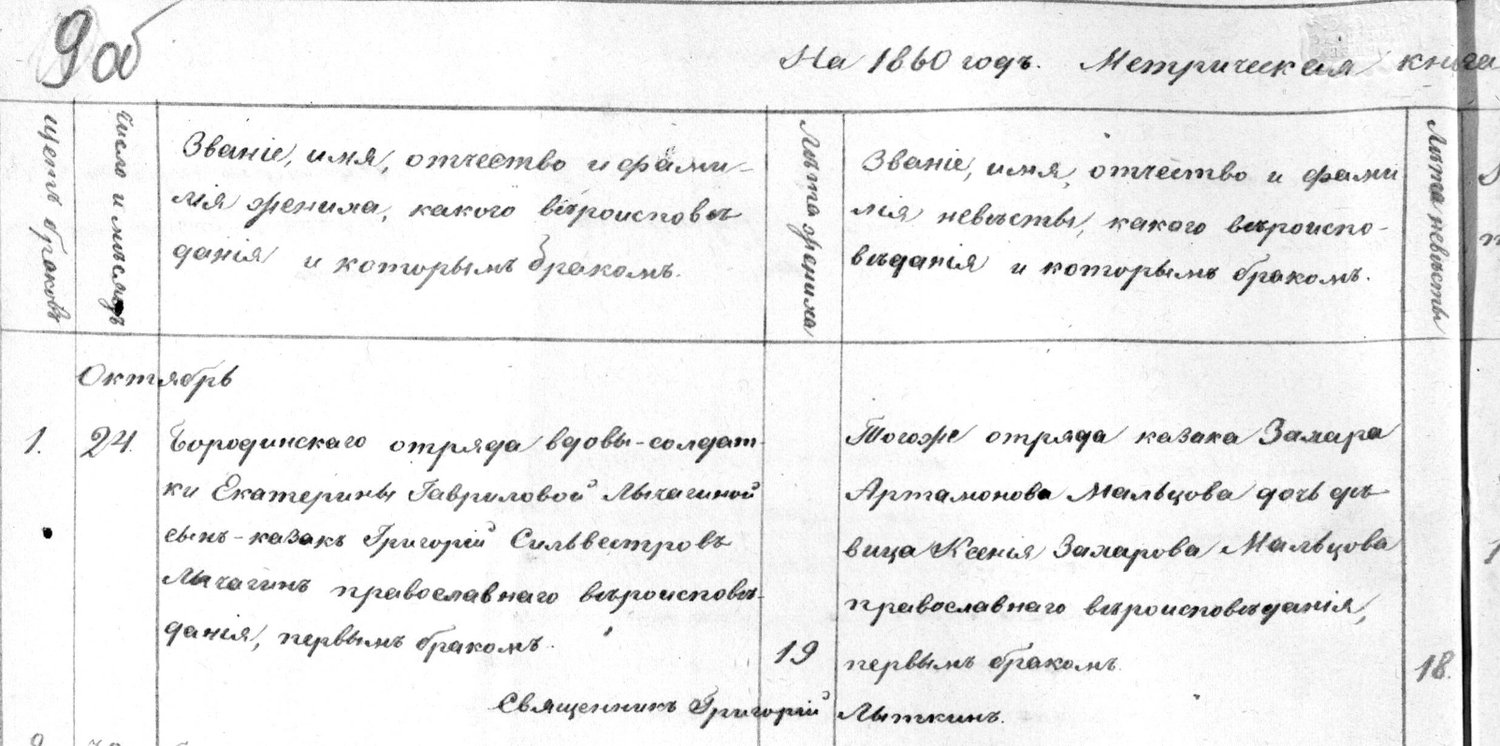 9 об
На 1860 годъ. Метрическая книга
Щетъ браковъ
Число и мѣсяцъ
Званіе, имя, отчество и фами-
лія жениха, какого вѣроисповѣ
данія и которымъ бракомъ.
Лѣта жениха
Званіе, имя, отчество и фами
лія невѣсты, какого вѣроиспо-
вѣданія и которымъ бракомъ.
Лѣта невѣсты
Октябрь
1.
24.
Бородинскаго отряда вдовы-солдат-
ки Екатерины Гавриловой Лычагиной
сынъ-казакъ Григорій Сильвестровъ
Лычагинъ православнаго вѣроисповѣ-
данія, первымъ бракомъ.
19
Тогоже отряда казака Захара
Артамонова Мальцова дочь дѣ
вица Ксенія Захарова Мальцова
православнаго вѣроисповѣданія,
первымъ бракомъ.
18.
Священникъ Григорій Лыткинъ.